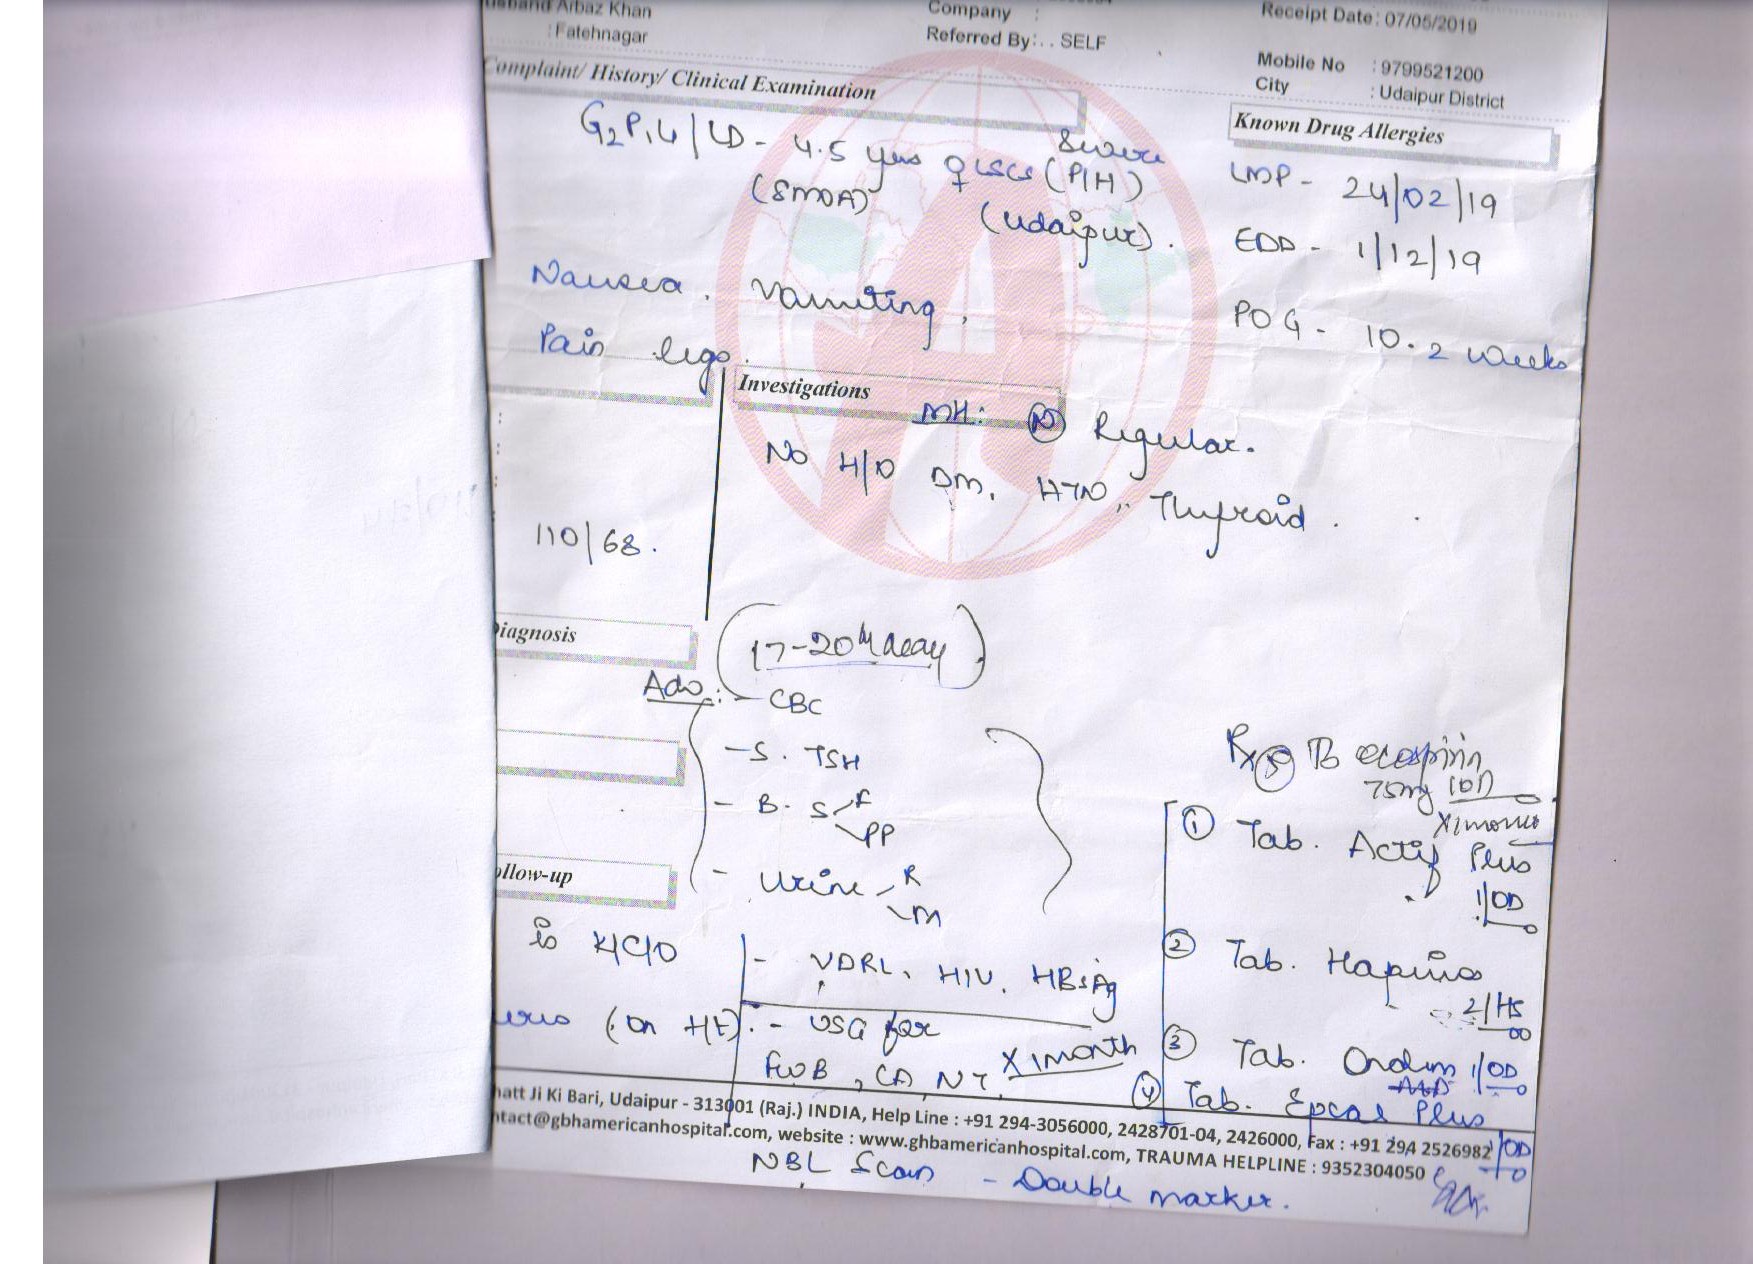 Husband Arbaz Khan
: Fatehnagar
Company :
Referred By: . . SELF
Receipt Date : 07/05/2019
Mobile No : 9799521200
City : Udaipur District
Complaint/ History/ Clinical Examination
Known Drug Allergies
G2P1L1 / LD - 4.5 yrs ♀ LSCS (Severe PIH)
(SMOA) (Udaipur).
LMP - 24/02/19
EDD - 1/12/19
POG - 10.2 weeks
Nausea, Vomiting,
Pain legs.
Investigations
MH: (N) Regular.
No H/O DM, HTN, Thyroid.
110/68.
Diagnosis
(17-20th May)
Adv: - CBC
- S. TSH
- B. S F
PP
- Urine R
M
Follow-up
is K/C/O
(on HT).
- VDRL, HIV, HBsAg
- USG for
FWB, CA, NT
X 1 month
NBL Scan - Double marker.
Rx (5) Tb ecosprin
75mg 1OD
X1month
(1) Tab. Actif Plus
1/OD
(2) Tab. Hapinos
2/HS
(3) Tab. Ondem 1/OD
(4) Tab. Epcal Plus
1/OD
Bhatt Ji Ki Bari, Udaipur - 313001 (Raj.) INDIA, Help Line : +91 294-3056000, 2428701-04, 2426000, Fax : +91 294 2526982
contact@gbhamericanhospital.com, website : www.ghbamericanhospital.com, TRAUMA HELPLINE : 9352304050